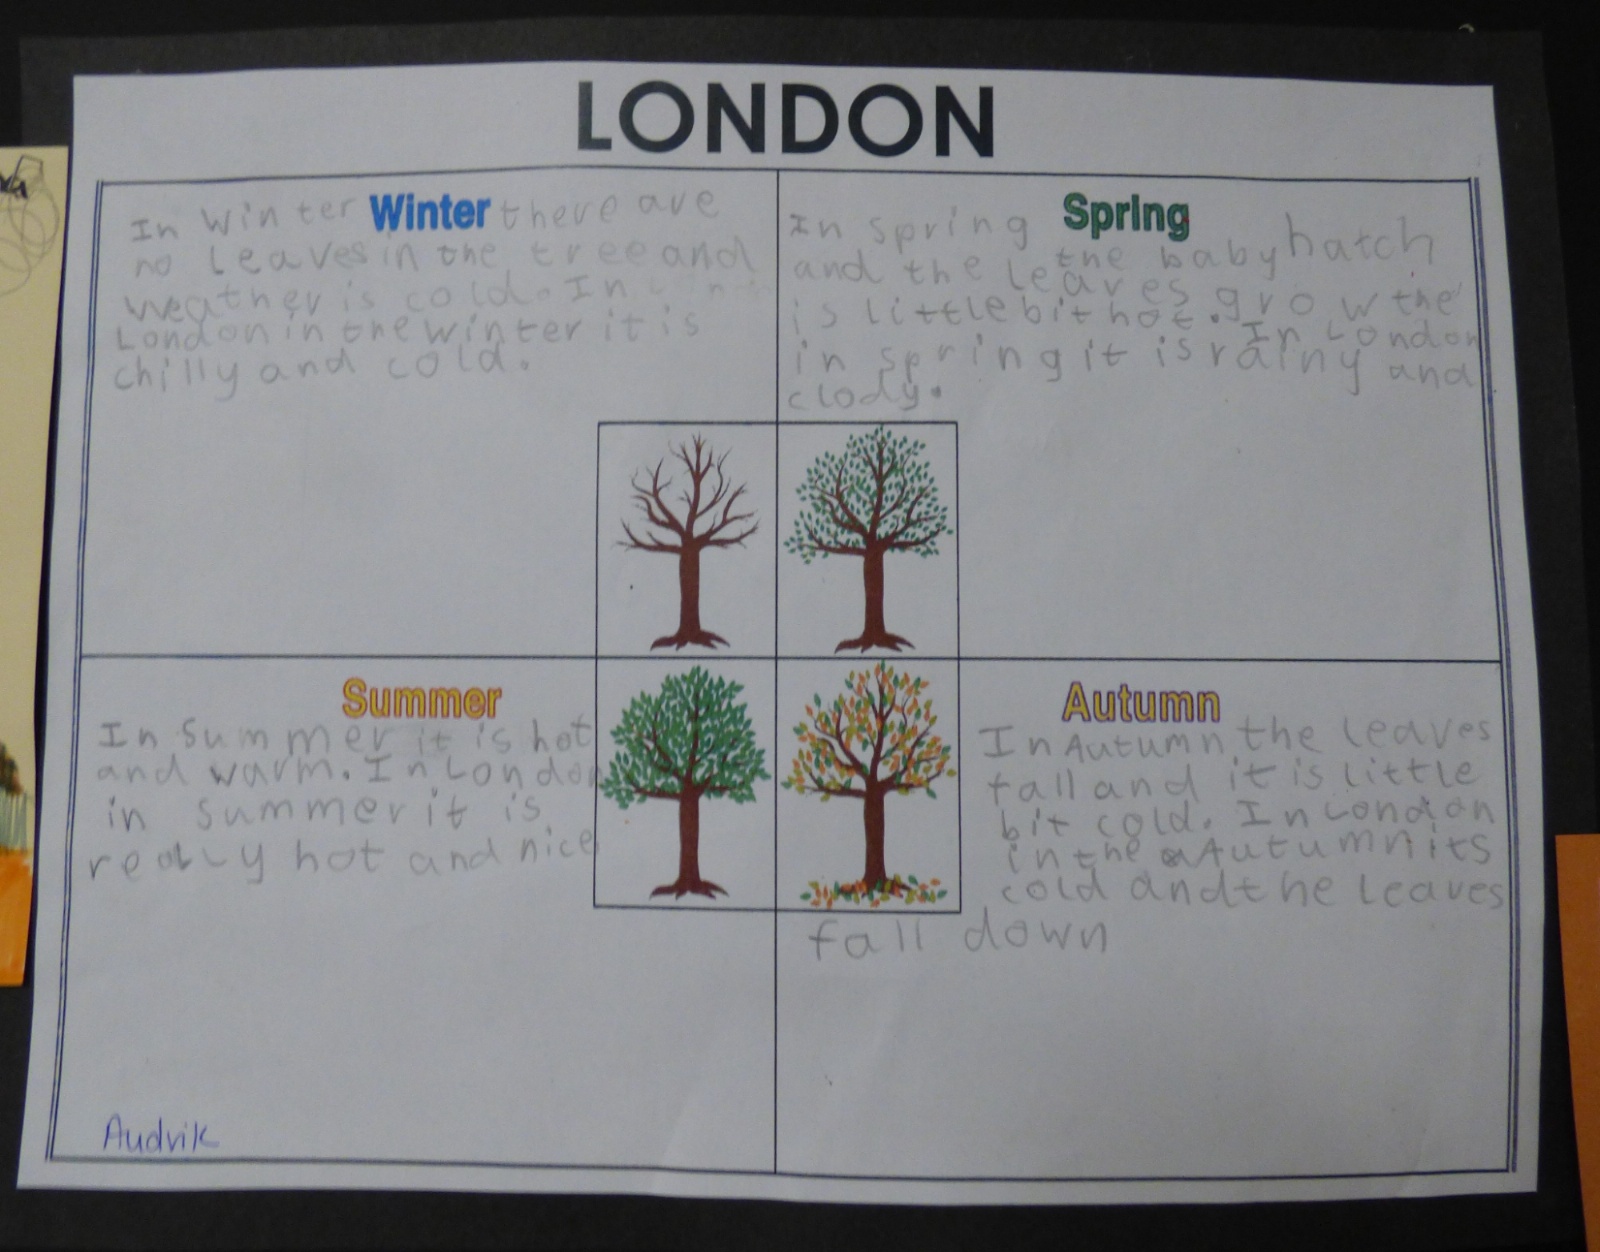 LONDON
Winter
In winter there are
no leaves in the tree and
weather is cold. In
London in the winter it is
chilly and cold.
Spring
In spring the baby hatch
and the leaves grow the
is little bit hot. In London
in spring it is rainy and
clody.
Summer
In Summer it is hot
and warm. In London
in summer it is
really hot and nice
Autumn
In Autumn the leaves
fall and it is little
bit cold. In London
in the Autumn its
cold and the leaves
fall down
Audvik